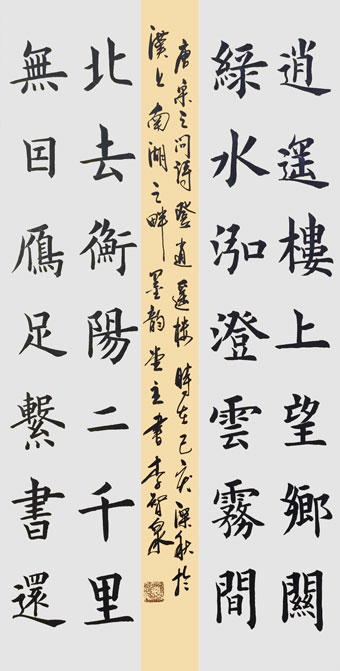 逍遥樓上望鄉關
綠水泓澄雲霧間
唐宋之问詩登逍遥楼時在己亥深秋於
漢上南湖之畔墨韵堂主書李智泉
北去衡陽二千里
無囙鴈足繫書還